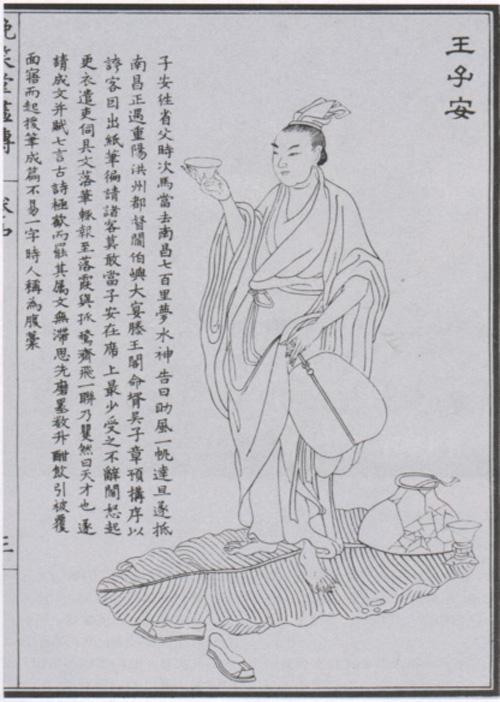 王子安
子安往省父時次馬當去南昌七百里夢水神告曰助風一帆達旦遂抵
南昌正遇重陽洪州都督閻伯嶼大宴滕王閣命壻吳子章預搆序以
誇客因出紙筆徧請諸客莫敢當子安在席上最少受之不辭閻怒起
更衣遣吏伺其文落筆輒報至落霞與孤鶩齊飛一聯乃矍然曰天才也遂
請成文并賦七言古詩極歡而罷其属文無滯思先磨墨数升酣飲引被覆
面寤而起援筆成篇不易一字時人稱為腹藁
晚笑堂畫傳